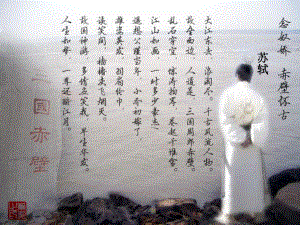 念奴娇 赤壁怀古
苏轼
大江东去，浪淘尽，千古风流人物。
故垒西边，人道是，三国周郎赤壁。
乱石穿空，惊涛拍岸，卷起千堆雪。
江山如画，一时多少豪杰。
遥想公瑾当年，小乔初嫁了，
雄姿英发，羽扇纶巾，
谈笑间，樯橹灰飞烟灭。
故国神游，多情应笑我，早生华发。
人生如梦，一尊还酹江月。
三国赤壁